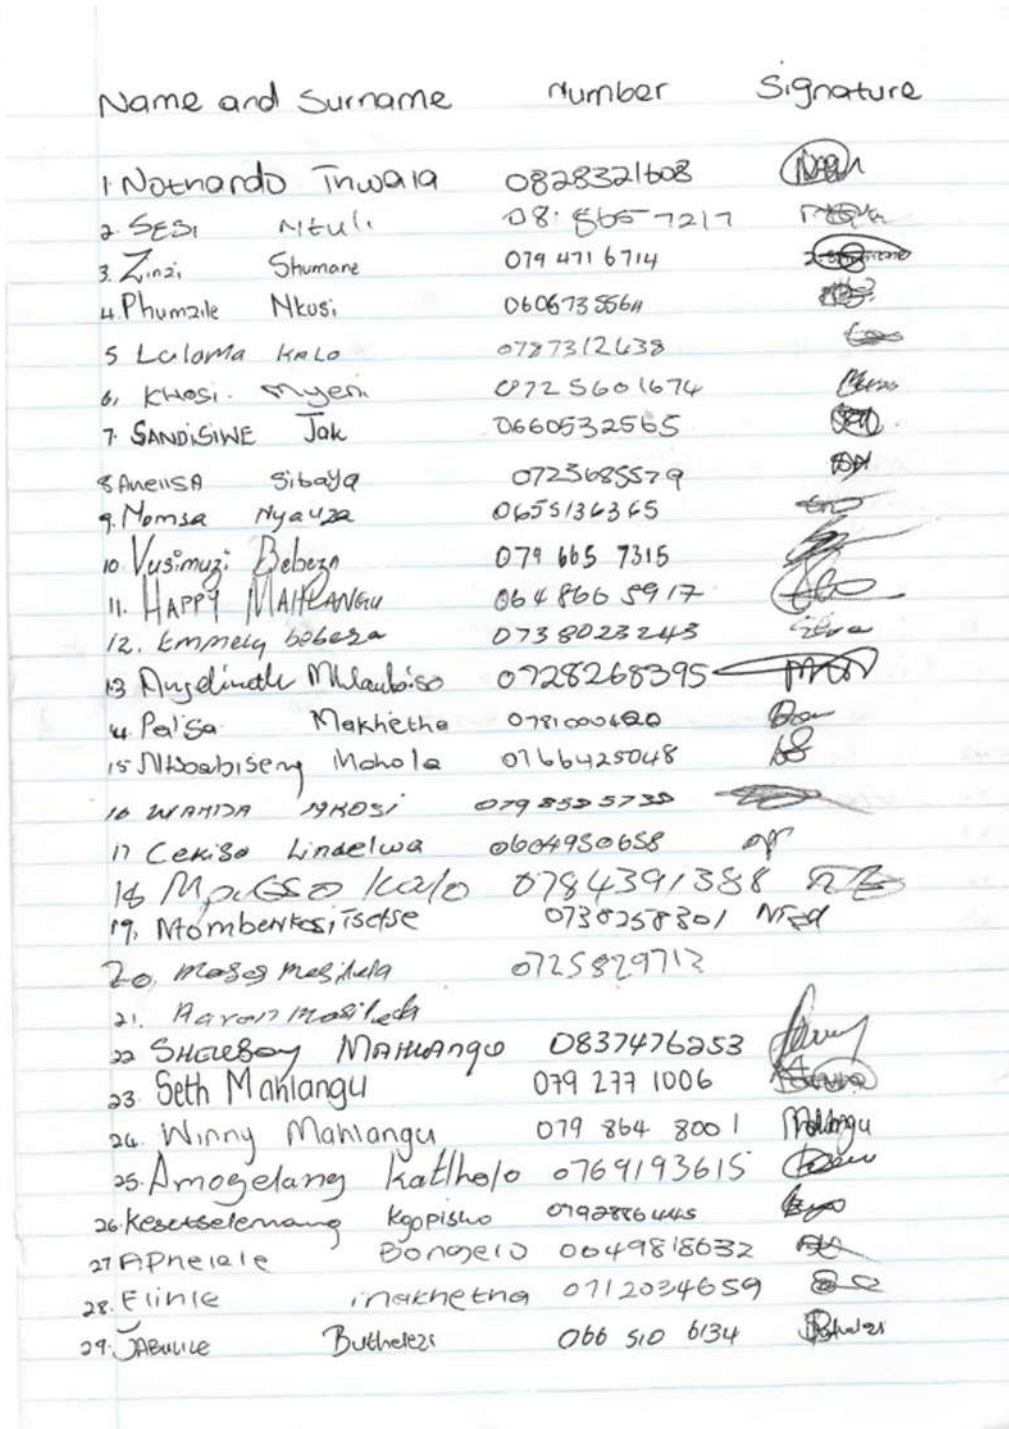 Name and Surname Number Signature
1. Notnardo Tnwala 0828321608
2. SESI Ntuli 7217
3. Zinzi Shumane 079 471 6714
4. Phumzile Nkosi
5 Lulama KALO 0787312638
6, KHOSI. Myeni 0725601674
7. SANDISIWE Jak 0660532565
8 Anelisa Sibaya 0723685579
9. Nomsa Nyauza 0655136365
10. Vusimuzi Bebeza 079 665 7315
11. HAPPY MAHLANGU 064 866 5917
12. Emmely bebeza 0738023243
13 0728268395
14. Palsa Makhetha
15 Ntsoabiseng Mohola 0766425048
16 WANDA NKOSI
17 Cekiso Lindelwa 0604950658
18 Kalo 0784391388
19, Nombenkosi Tsetse 0738258301
20, Moses Masilela
21. Aaron Masilela
22 MAHLANGU 0837476253
23. Seth Mahlangu 079 277 1006
24. Winny Mahlangu 079 864 8001 Mahlangu
25. Amogelang Katlholo 0769193615
26. Kesetselemang 0792886445
27 Aphelele Bongelo 0649818632
28. Elinle makhetha 0712034659
29. JABULILE Buthelezi 066 510 6134